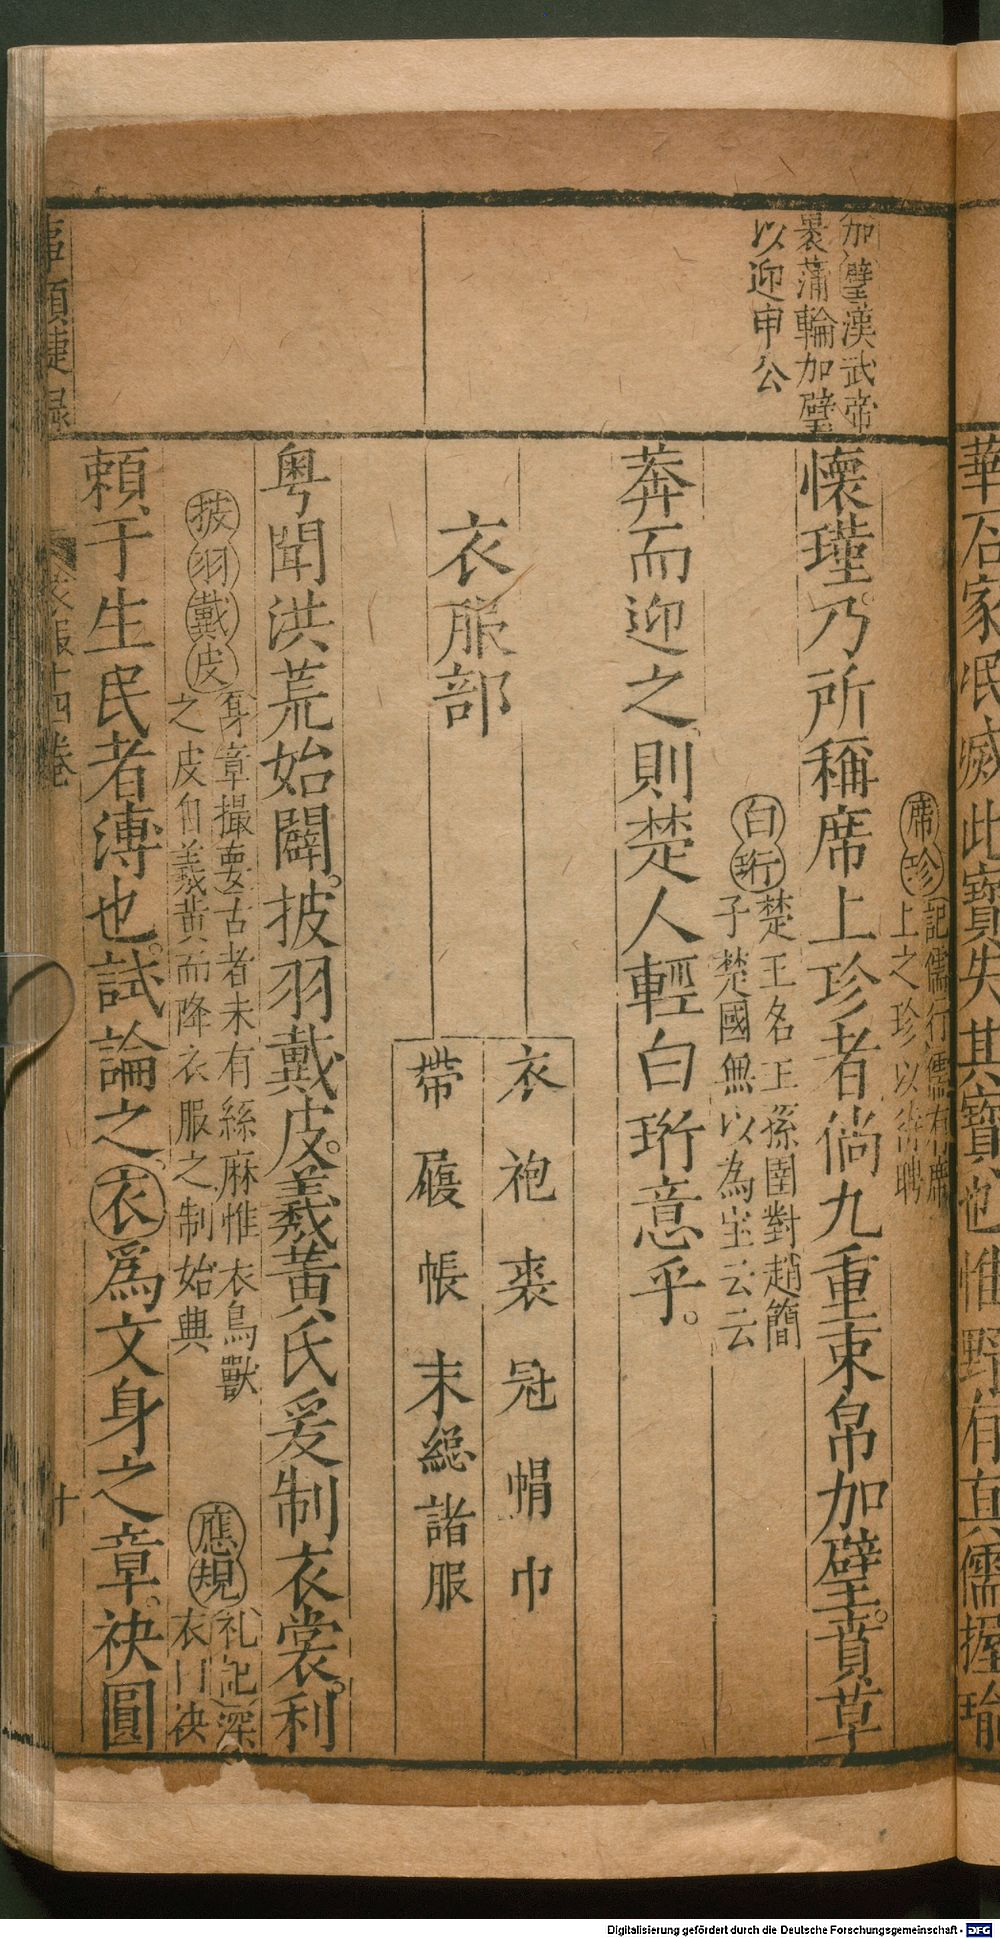 加璧漢武帝
裹蒲輪加璧
以迎申公
席珍
記儒行儒有席
上之珍以待聘
懷瑾乃所稱席上珍者倘九重束帛加璧。賁草
白珩
楚王名王孫圉對趙簡
子楚國無以為宝云云
莽而迎之則楚人輕白珩意乎。
衣服部
衣袍裘冠帽巾
帶履帳末總諸服
粵聞洪荒始闢。披羽戴皮。羲黃氏爰制衣裳。利
披羽戴皮
身章撮要古者未有絲麻惟衣鳥獸
之皮自羲黄而降衣服之制始典
應規
礼記深
衣曰袂
賴于生民者溥也。試論之。衣爲文身之章。袂圓
事類捷錄
衣服十四卷
十
華石家氓滅此寶失其寶也惟野有真儒握瑜
Digitalisierung gefördert durch die Deutsche Forschungsgemeinschaft - DFG